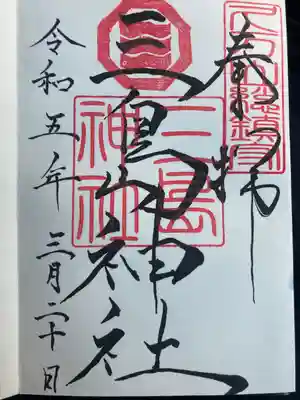 奉拝
三島神社
三島神社
令和五年 三月二十日